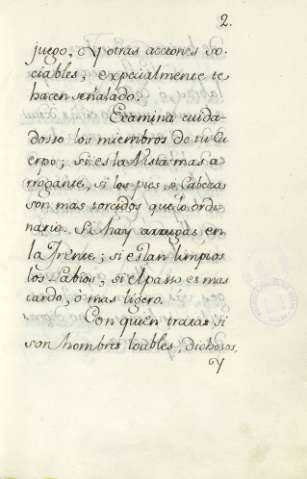 2.
juego, y otras acciones so-
ciables; expecialmente te
hacen señalado.
Examina cuida-
dosso los miembros de tu Cu
erpo; si es la Vista mas a
rrogante, si los pies, o Cabezas
son mas torcidos que lo ordi
nario. Si hay arrugas en
la Frente; si estan limpios
los Labios; si el passo es mas
tardo, ò mas ligero.
Con quien tratas, si
son hombres loables, dichosos,
y